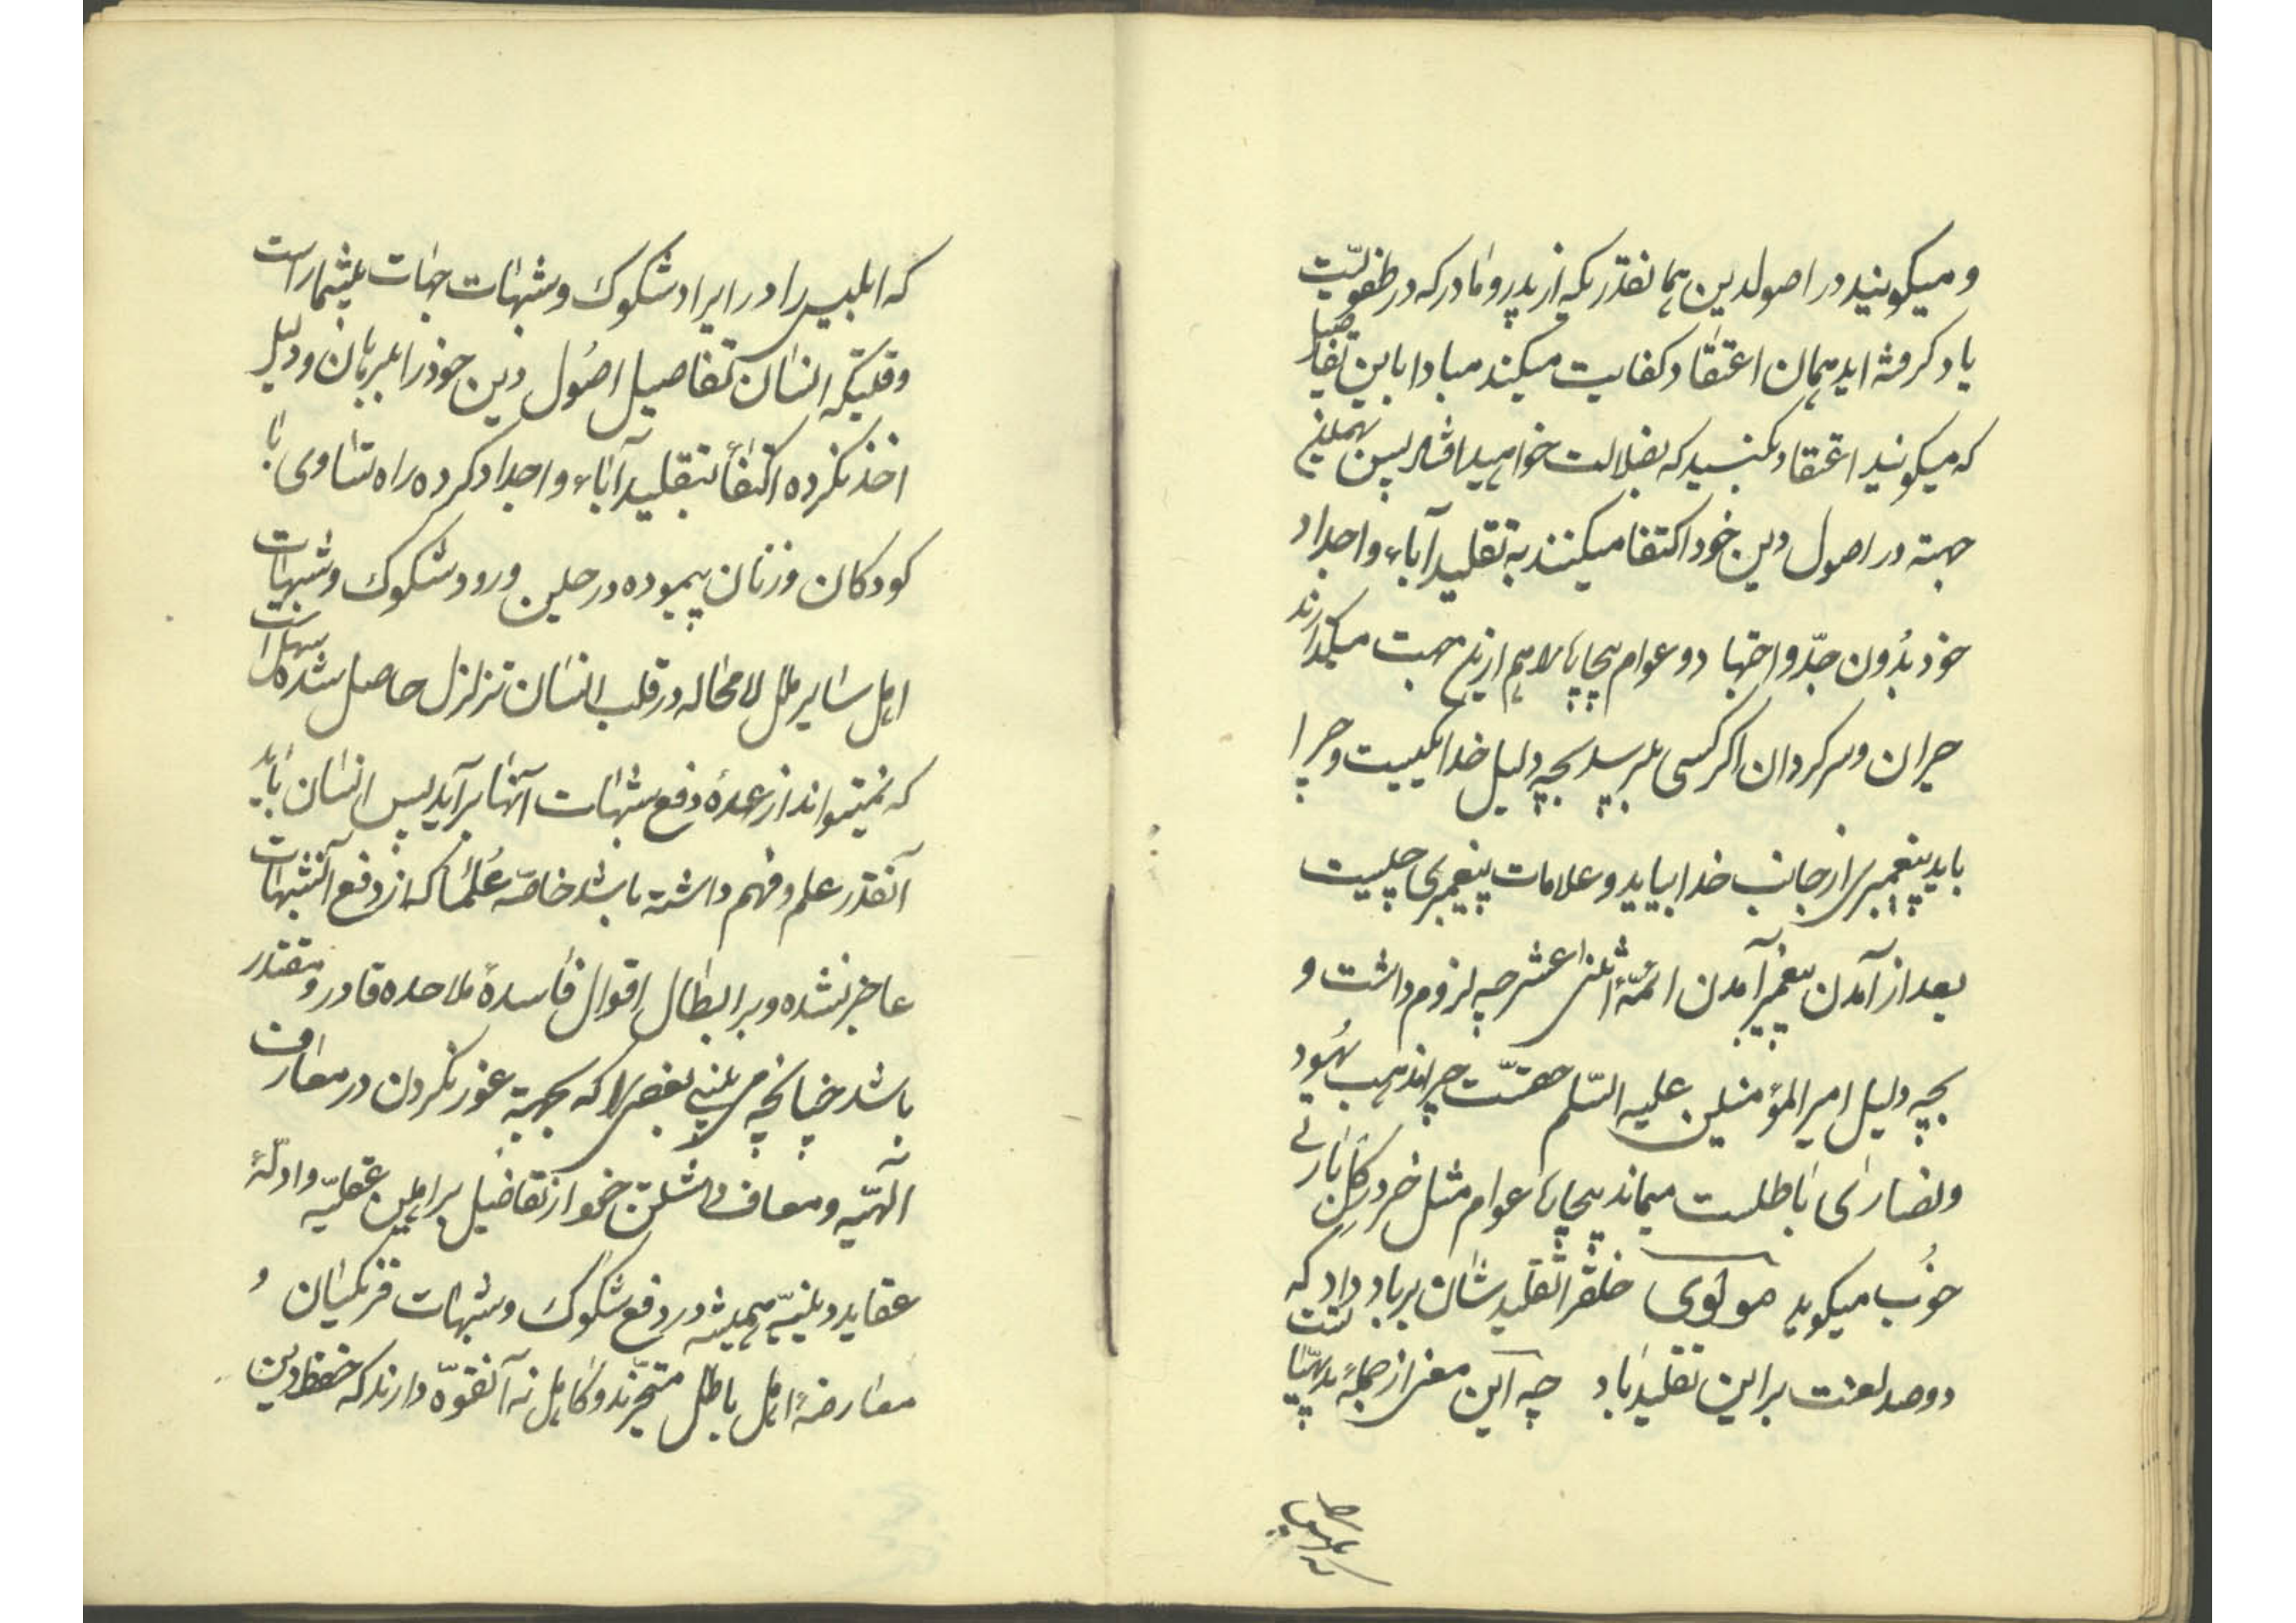 و میکویند در اصولدین همانقدریکه از پدر و مادر که در طفولیّت
یاد کرفته اید همان اعتقاد کفایت میکند مبادا باین تفاصیل
که میکویند اعتقاد بکنید که بضلالت خواهید افتاد پس بهمین
جهته در اصول دین خود اکتفا میکنند به تقلید آباء و اجداد
خود بدُون جدّ و اجتهاد و عوام بیچاپا را هم ازین جهت میکذارند
حیران و سرکردان اکر کسی بپرسد بچه دلیل خدا یکیست و چرا
باید پیغمبری از جانب خدا بیاید و علامات پیغمبری چیست
بعد از آمدن پیغمبر آمدن ائمّهٔ اثنی عشر چه لزوم داشت و
بچه دلیل امیر المؤمنین علیه السّلم حقّست چرا مذهب یهُود
و نصارٰی باطلست میماند بیچاره عوام مثل خر در کل بارٖی
خُوب میکوید مولوی خلقرا تقلیدشان بر باد داد که
دو صد لعنت بر این تقلید باد چه این معنی از جملهٔ بدیهیّاتست
که ابلیس را در ایراد شکوک و شبهات جهات بیشمار است
وقتیکه انسان تفاصیل اصُول دین خودرا ببرهان و دلیل
اخذ نکرده اکتفاً بتقلید آباء و اجداد کرده راه تساوی با
کودکان و زنان پیموده در حین ورود شکوک و شبهات
اهل سایر ملل لامحاله در قلب انسان تزلزل حاصل شده سهل است
که نمیتواند از عهدهٔ دفع شبهات آنها برآید پس انسان باید
آنقدر علم و فهم داشته باشد خاصّه عُلمٰا که از دفع آنشبهات
عاجز نشده و بر ابطال اقوال فاسدهٔ ملاحده قادر و مقتدر
باشد چنانچه می بینی بعضی را که بجهته غور نکردن در معارف
الٓهیّه و معاف داشتن خود از تفاصیل براهین عقلیّه و ادلّهٔ
عقاید دینیّه همیشه در دفع شکوک و شبهات فرنکیان و
معارضهٔ اهل باطل متحیّرند و کاهل نه آنقوّه دارند که حفظ دین